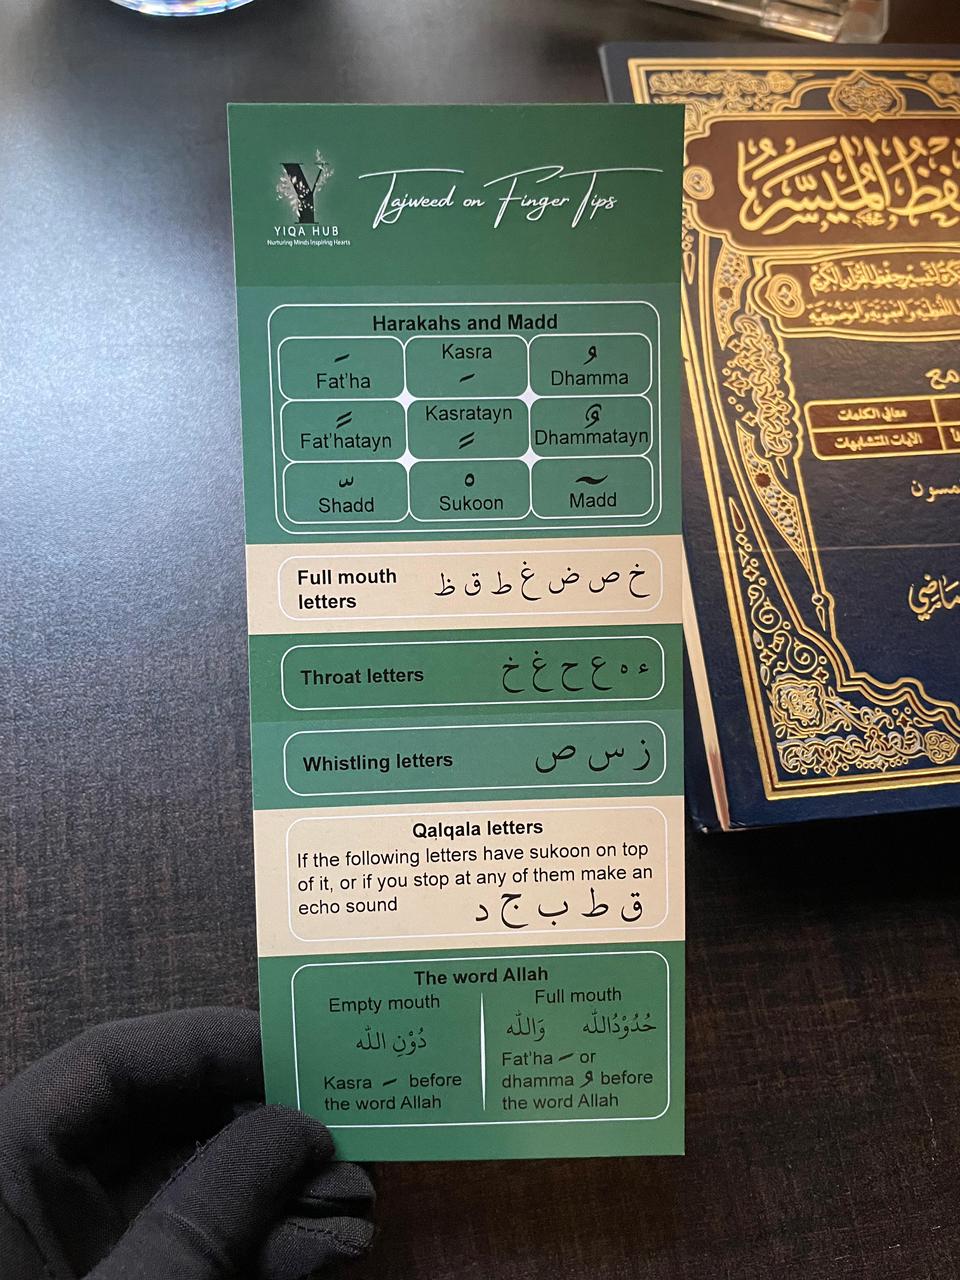 YIQA HUB
Nurturing Minds Inspiring Hearts
Tajweed on Finger Tips
Harakahs and Madd
Fat'ha
Kasra
Dhamma
Fat'hatayn
Kasratayn
Dhammatayn
Shadd
Sukoon
Madd
Full mouth
letters
خ ص ض غ ط ق ظ
Throat letters
ء ه ع ح غ خ
Whistling letters
ز س ص
Qalqala letters
If the following letters have sukoon on top
of it, or if you stop at any of them make an
echo sound
ق ط ب ج د
The word Allah
Empty mouth
دُوْنِ اللّٰه
Kasra before
the word Allah
Full mouth
حُدُوْدُاللّٰه وَاللّٰه
Fat'ha or
dhamma before
the word Allah
الميسر
مع
معاني الكلمات
الآيات المتشابهات